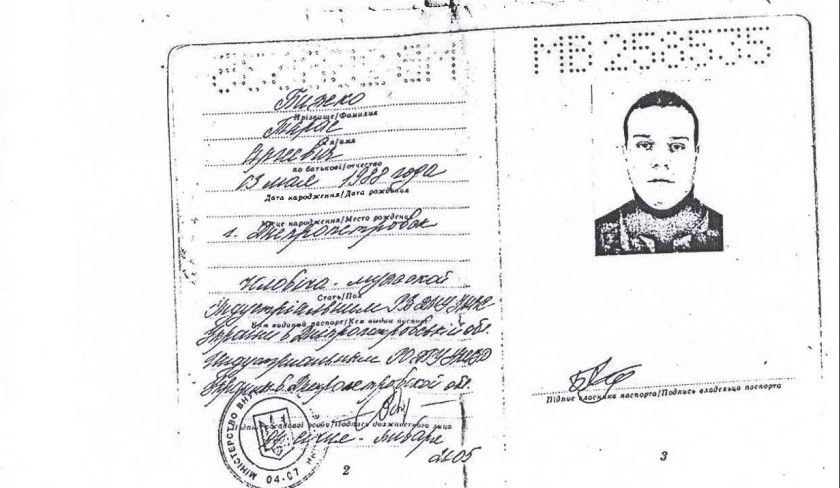 МВ 258535
Тижко
Прізвище/Фамилия
Тарас
Ім'я/имя
По батькові/отчество
03 мая 1988 года
Дата народження/Дата рождения
Місце народження/Место рождения
г. Днепропетровск
Чоловіча - мужской
Стать/Пол
Індустріальним РВ ДМУ УМВС
Ким виданий паспорт/Кем выдан паспорт
України в Дніпропетровській обл.
Индустриальным
Украины в Днепропетровской обл.
Підпис посадової особи/Подпись должностного лица
січня - января
2005
МІНІСТЕРСТВО ВНУ
04-07
2
Підпис власника паспорта/Подпись владельца паспорта
3